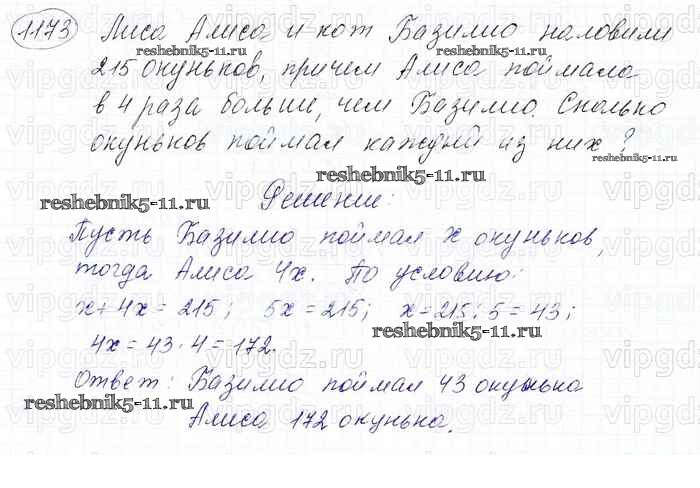 1173 Лиса Алиса и кот Базилио наловили
215 окуньков, причем Алиса поймала
в 4 раза больше, чем Базилио. Сколько
окуньков поймал каждый из них?
Решение:
Пусть Базилио поймал x окуньков,
тогда Алиса 4x. По условию:
x + 4x = 215; 5x = 215; x = 215 : 5 = 43;
4x = 43 · 4 = 172.
Ответ: Базилио поймал 43 окунька
Алиса 172 окунька.
reshebnik5-11.ru
reshebnik5-11.ru
reshebnik5-11.ru
reshebnik5-11.ru
reshebnik5-11.ru
reshebnik5-11.ru
reshebnik5-11.ru
vipgdz.ru